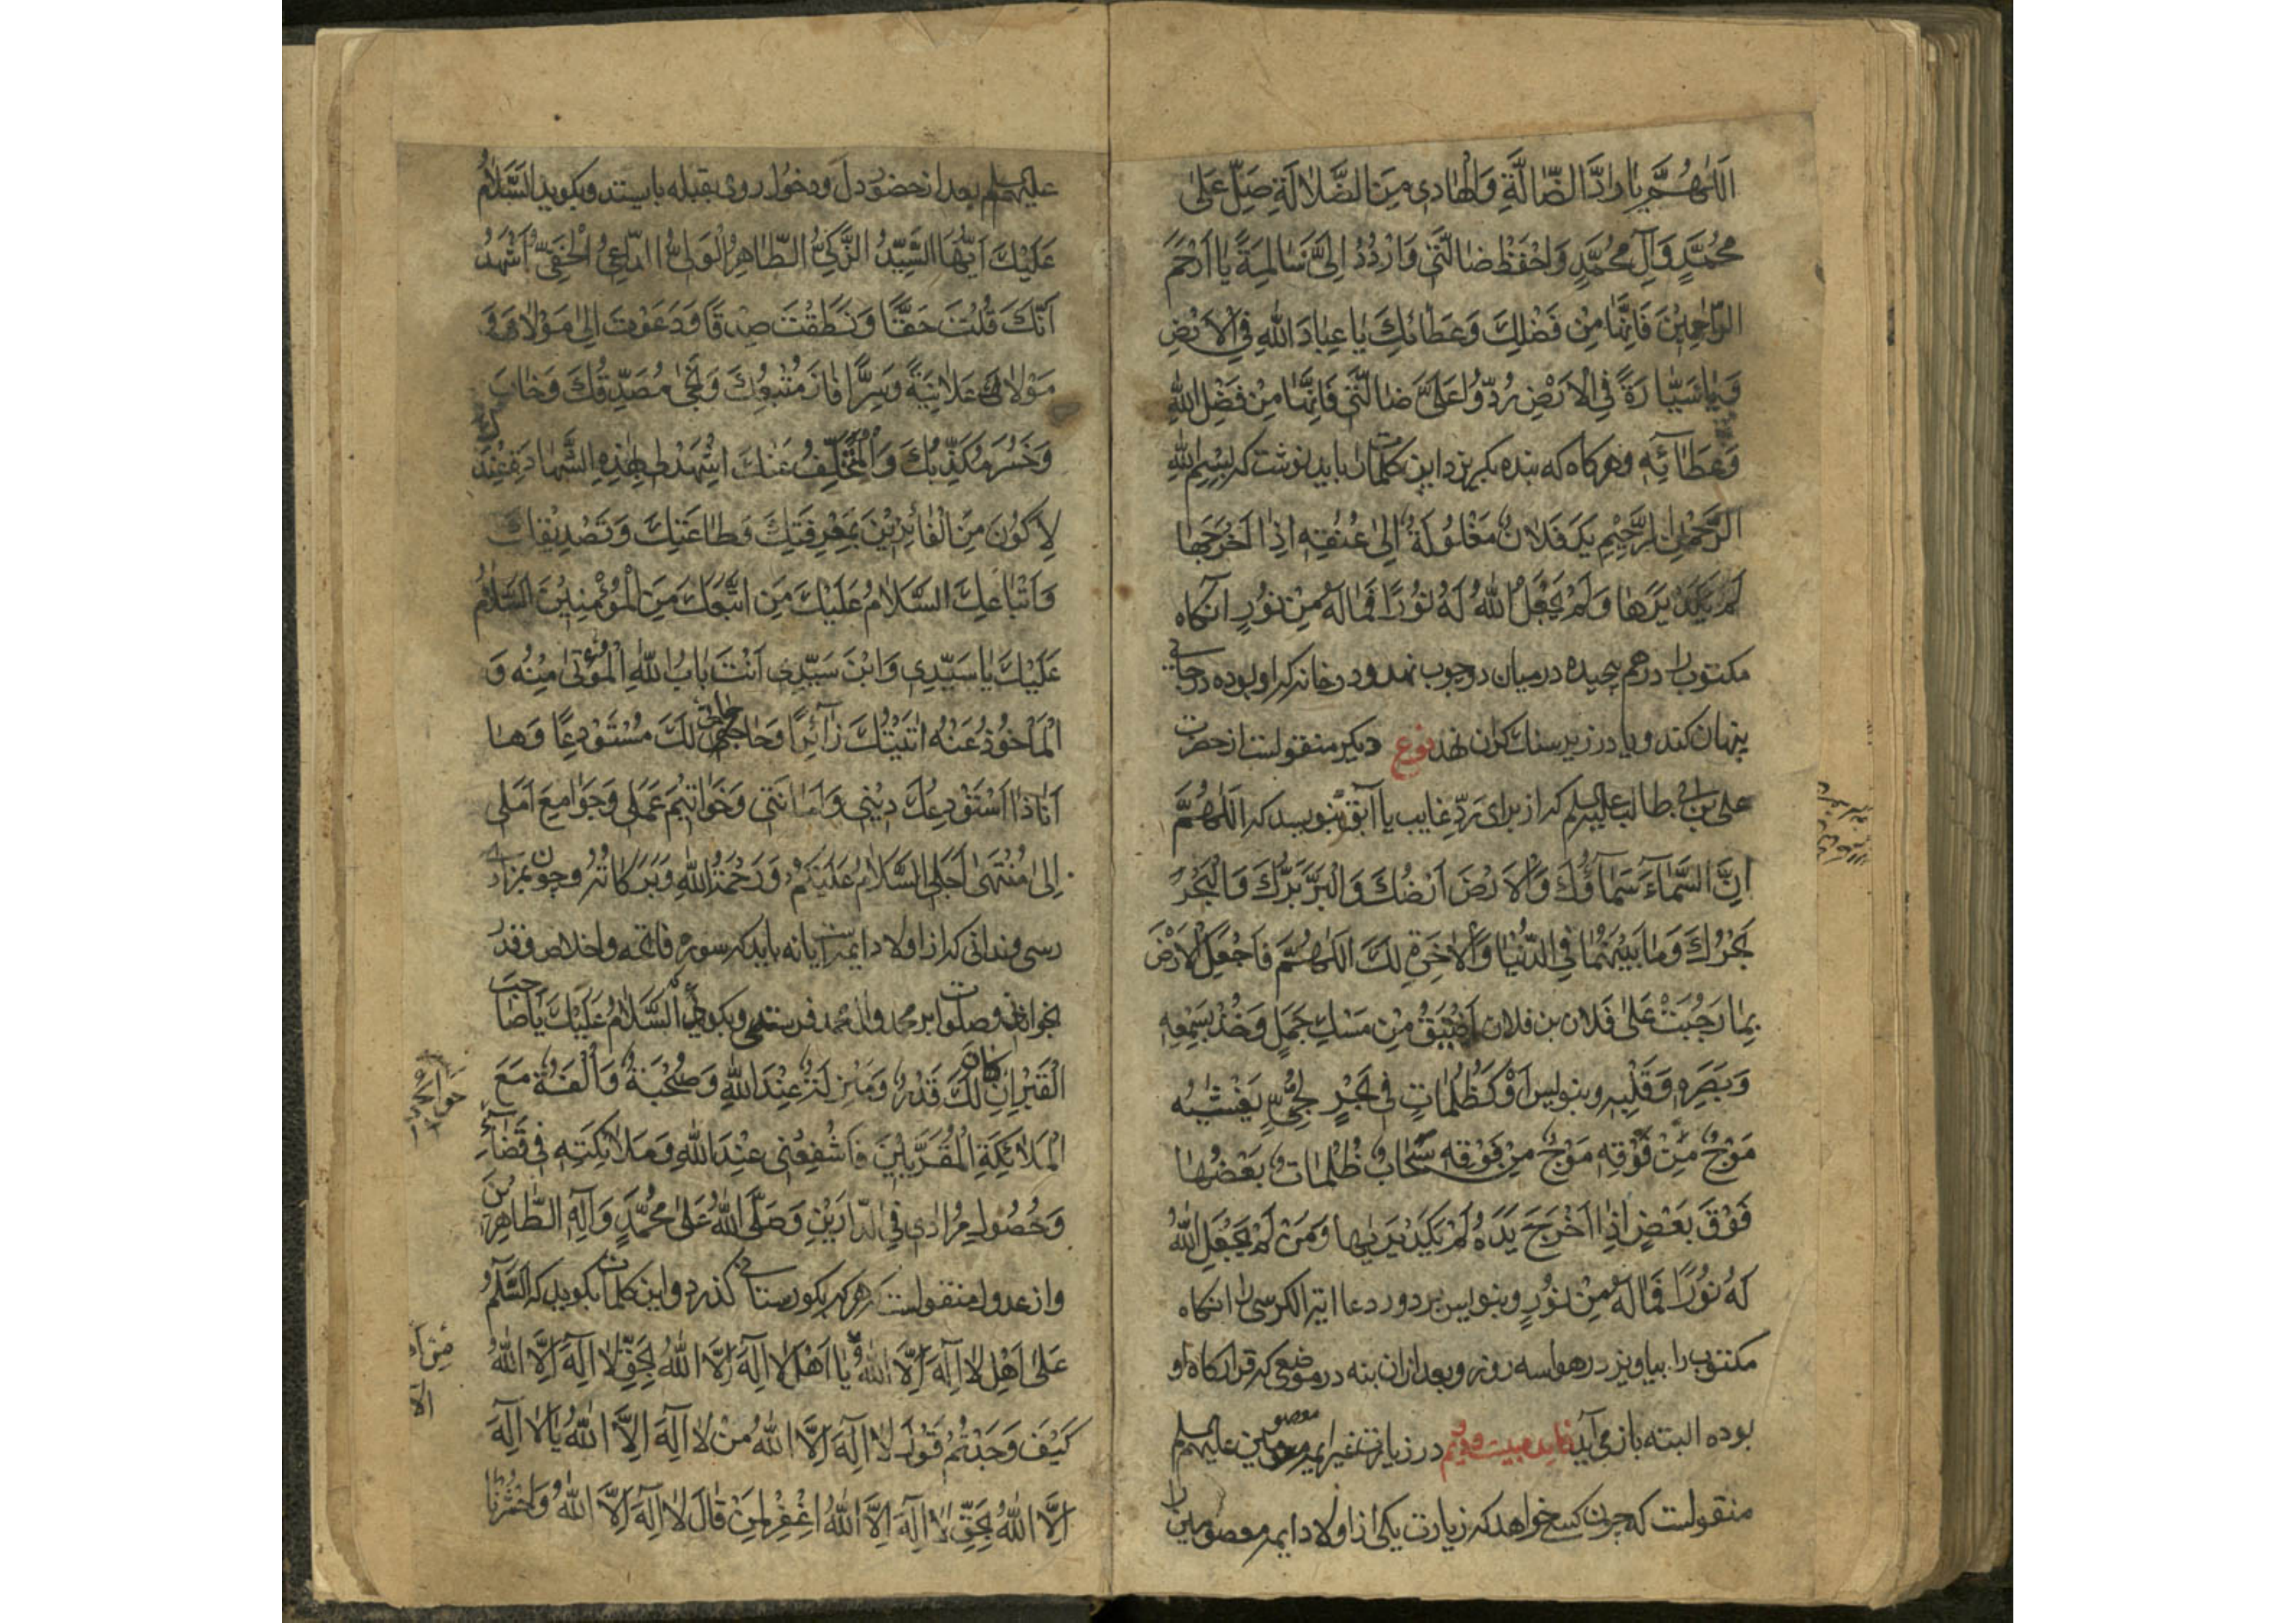 اَللّٰهُمَّ يٰا رٰادَّ الضّٰالَّةِ وَالْهٰادى مِنَ الضَّلاٰلَةِ صَلِّ عَلىٰ
مُحَمَّدٍ وَآلِ مُحَمَّدٍ وَاحْفَظْ ضٰالَّتى وَارْدُدْ اِلَىَّ سٰالِمَةً يٰا اَرْحَمَ
الرّٰاحِمِيْنَ فَاِنَّهٰا مِنْ فَضْلِكَ وَعَطٰائكَ يٰا عِبٰادَ اللهِ فِى الْاَرْضِ
وَيٰا سَيّٰارَةً فِى الْاَرْضِ رُدُّوْا عَلَىَّ ضٰالَّتى فَاِنَّهٰا مِنْ فَضْلِ اللهِ
وَعَطٰائِهِ وهركاه كه بنده بكريزد اين كلمات را بايد نوشت كه بِسْمِ اللهِ
الرَّحْمٰنِ الرَّحِيْمِ يَدَ فَلاٰن مَغْلُوْلَةٌ اِلىٰ عُنُقِهِ اِذٰا اَخْرَجَهٰا
لَمْ يَكَدْ يَرٰهٰا وَلَمْ يَجْعَلِ اللهُ لَهُ نُوْرًا فَمٰا لَهُ مِنْ نُوْرٍ انكاه
مكتوب را درهم پيچيده درميان دوچوب نهد ودرخانه كه او بوده درجائى
پنهان كند ويا در زير سنك كران نهد نوع ديكر منقولست از حضرت
على بن ابى طالب عليه السلم كه از براى ردّ غايب يا آبق بنويسد كه اَللّٰهُمَّ
اِنَّ السَّمٰاءَ سَمٰاؤُكَ وَالْاَرْضَ اَرْضُكَ وَالْبَرَّ بَرُّكَ وَالْبَحْرَ
بَحْرُكَ وَمٰا بَيْنَهُمٰا فِى الدُّنْيٰا وَالْاٰخِرَةِ لَكَ اَللّٰهُمَّ فَاجْعَلِ الْاَرْضَ
بِمٰا رَحُبَتْ عَلىٰ فَلاٰن بن فلان اَضْيَقَ مِنْ مَسْكِ جَمَلٍ وَخُذْ بِسَمْعِهِ
وَبَصَرِهِ وَقَلْبِهِ وبنويس اَوْ كَظُلُمٰاتٍ فى بَحْرٍ لُجِّىٍّ يَغْشٰيٰهُ
مَوْجٌ مِنْ فَوْقِهِ مَوْجٌ مِنْ فَوْقِهِ سَحٰابٌ ظُلُمٰاتٌ بَعْضُهٰا
فَوْقَ بَعْضٍ اِذٰا اَخْرَجَ يَدَهُ لَمْ يَكَدْ يَرٰيهٰا وَمَنْ لَمْ يَجْعَلِ اللهُ
لَهُ نُوْرًا فَمٰا لَهُ مِنْ نُوْرٍ وبنويس بر دور دعا اية الكرسى را انكاه
مكتوب را بياويز درهوا سه روز وبعد ازان بنه درموضعى كه قرارگاه او
بوده البته باز مى آيد فايده بيست ودويم در زيارت غير ايمه معصومين عليهم السلم
منقولست كه چون كسى خواهد كه زيارت يكى از اولاد ايمه معصومين را
عليهم السلم بعد از حضور دل ودخول روى بقبله بايستد وبكويد السَّلاٰمُ
عَلَيْكَ اَيُّهَا السَّيِّدُ الزَّكِىُّ الطّٰاهِرُ الْوَلِىُّ الدّٰاعِى الْحَفِىُّ اَشْهَدُ
اَنَّكَ قُلْتَ حَقًّا وَنَطَقْتَ صِدْقًا وَدَعَوْتَ اِلىٰ مَوْلاٰىَ وَ
مَوْلاٰكَ عَلاٰنِيَةً وَسِرًّا فٰازَ مُتَّبِعُكَ وَنَجىٰ مُصَدِّقُكَ وَخٰابَ
وَخَسِرَ مُكَذِّبُكَ وَالْمُتَخَلِّفُ عَنْكَ اشْهَدْ لى بِهٰذِهِ الشَّهٰادَةِ عِنْدَكَ
لِاَكُوْنَ مِنَ الْفٰائِزِيْنَ بِمَعْرِفَتِكَ وَطٰاعَتِكَ وَتَصْدِيْقِكَ
وَاتِّبٰاعِكَ السَّلاٰمُ عَلَيْكَ مَنِ اتَّبَعَكَ مِنَ الْمُؤْمِنِيْنَ السَّلاٰمُ
عَلَيْكَ يٰا سَيِّدِى وَابْنَ سَيِّدِى اَنْتَ بٰابُ اللهِ الْمُؤْتىٰ مِنْهُ وَ
الْمَأْخُوْذُ عَنْهُ اَتَيْتُكَ زٰائِرًا وَحٰاجٰاتى لَكَ مُسْتَوْدِعًا وَهٰا
اَنٰا ذٰا اَسْتَوْدِعُكَ دِيْنى وَاَمٰانَتى وَخَوٰاتِيْمَ عَمَلى وَجَوٰامِعَ اَمَلى
اِلىٰ مُنْتَهىٰ اَجَلى السَّلاٰمُ عَلَيْكُمْ وَرَحْمَةُ اللهِ وَبَرَكٰاتُهُ وچون بمزارى
رسى وندانى كه از اولاد ايمه است يا نه بايد كه سوره فاتحه واخلاص وقدر
بخوانى وصلوات بر محمد وال محمد فرستى وبكوئى اَلسَّلاٰمُ عَلَيْكَ يٰا صٰاحِبَ
الْقَبْرِ اِنْ كٰانَ لَكَ قَدْرٌ وَمَنْزِلَةٌ عِنْدَ اللهِ وَصُحْبَةٌ وَاُلْفَةٌ مَعَ
الْمَلاٰئِكَةِ الْمُقَرَّبِيْنَ فَاشْفِعْنى عِنْدَ اللهِ وَمَلاٰئِكَتِهِ فى قَضٰاءِ
وَحُصُوْلِ مُرٰادى فِى الدّٰارَيْنِ وَصَلَّى اللهُ عَلىٰ مُحَمَّدٍ وَآلِهِ الطّٰاهِرِيْنَ
منقولست كه هركه بكورستانى كذرد واين كلمات بكويد كه السَّلاٰمُ
عَلىٰ اَهْلِ لاٰ اِلٰهَ اِلَّا اللهُ يٰا اَهْلَ لاٰ اِلٰهَ اِلَّا اللهُ بِحَقِّ لاٰ اِلٰهَ اِلَّا اللهُ
كَيْفَ وَجَدْتُمْ قَوْلَ لاٰ اِلٰهَ اِلَّا اللهُ مِنْ لاٰ اِلٰهَ اِلَّا اللهُ يٰا لاٰ اِلٰهَ
اِلَّا اللهُ بِحَقِّ لاٰ اِلٰهَ اِلَّا اللهُ اغْفِرْ لِمَنْ قٰالَ لاٰ اِلٰهَ اِلَّا اللهُ وَاحْشُرْنٰا